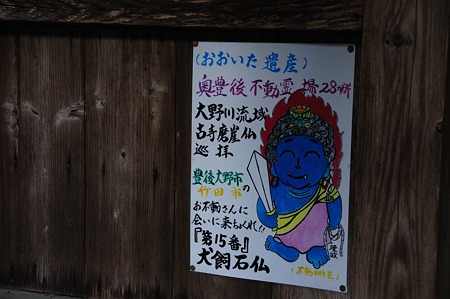 (おおいた遺産)
奥豊後不動霊場28ヶ所
大野川流域
古寺磨崖仏
巡拝
豊後大野市の
竹田市
お不動さんに
会いに来ちょくれ!!
『第15番』
犬飼石仏
(不動明王)